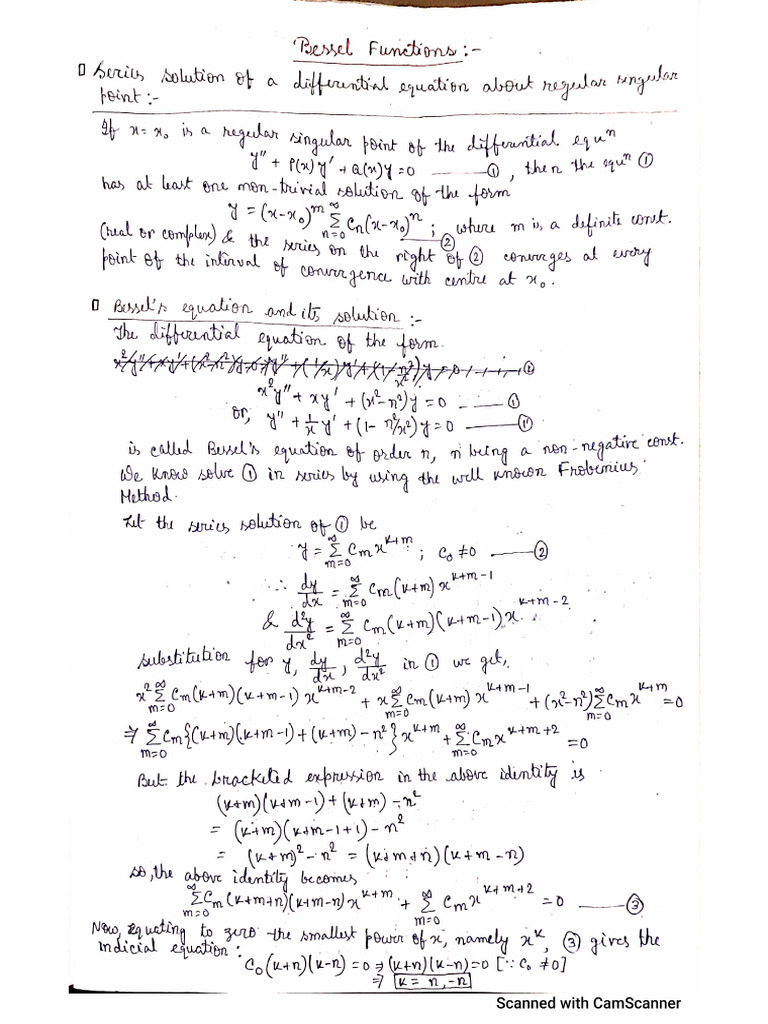 Bessel Functions :-
▯ Series solution of a differential equation about regular singular
point :-
If x = x₀ is a regular singular point of the differential equⁿ
y'' + P(x) y' + Q(x) y = 0 ——— ①, then the equⁿ ①
has at least one non-trivial solution of the form
y = (x-x₀)^m ∑_{n=0}^∞ Cₙ(x-x₀)ⁿ ; where m is a definite const.
(real or complex) & the series on the right of ② converges at every ——— ②
point of the interval of convergence with centre at x₀.
▯ Bessel's equation and its solution :-
The differential equation of the form.
x²y'' + xy' + (x²-n²)y = 0 ——— ①
or, y'' + 1/x y' + (1 - n²/x²)y = 0 ——— ①'
is called Bessel's equation of order n, n being a non-negative const.
We know solve ① in series by using the well known Frobenius
Method.
Let the series solution of ① be
y = ∑_{m=0}^∞ C_m x^{k+m} ; C₀ ≠ 0 ——— ②
∴ dy/dx = ∑_{m=0}^∞ C_m (k+m) x^{k+m-1}
& d²y/dx² = ∑_{m=0}^∞ C_m (k+m)(k+m-1) x^{k+m-2}
substitution for y, dy/dx, d²y/dx² in ① we get,
x² ∑_{m=0}^∞ C_m(k+m)(k+m-1) x^{k+m-2} + x ∑_{m=0}^∞ C_m(k+m) x^{k+m-1} + (x²-n²) ∑_{m=0}^∞ C_m x^{k+m} = 0
⇒ ∑_{m=0}^∞ C_m {(k+m)(k+m-1) + (k+m) - n²} x^{k+m} + ∑_{m=0}^∞ C_m x^{k+m+2} = 0
But the bracketed expression in the above identity is
(k+m)(k+m-1) + (k+m) - n²
= (k+m)(k+m-1+1) - n²
= (k+m)² - n² = (k+m+n)(k+m-n)
so, the above identity becomes
∑_{m=0}^∞ C_m (k+m+n)(k+m-n) x^{k+m} + ∑_{m=0}^∞ C_m x^{k+m+2} = 0 ——— ③
Now, equating to zero the smallest power of x, namely x^k, ③ gives the
indicial equation :
C₀(k+n)(k-n) = 0 ⇒ (k+n)(k-n) = 0 [∵ C₀ ≠ 0]
⇒ k = n, -n
Scanned with CamScanner